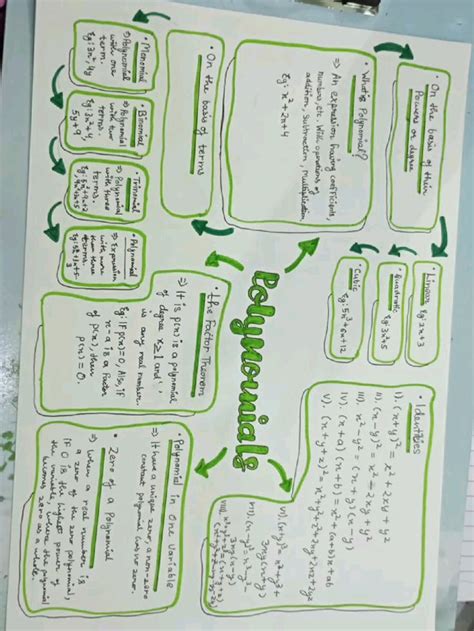 Polynomials
• What is Polynomial?
⇒ An expression having coefficients,
numbers, etc. With operations of
addition, Subtraction, Multiplication
Eg: x² + 2x + 4
• On the basis of their
Powers or degree
Linear
Eg: 2x + 3
• Quadratic
Eg: 3x² + 5
• Cubic
Eg: 5x³ + 6x + 12
• On the basis of terms
• Monomial
⇒ Polynomial
with one
term.
Eg: 3x², 4y
• Binomial
⇒ Polynomial
with two
terms.
5y + 9
• Trinomial
⇒ Polynomial
with three
terms.
• Polynomial
⇒ Expression
with more
than three
terms.
• Identities
I). (x+y)² = x² + 2xy + y²
II). (x-y)² = x² - 2xy + y²
III). x² - y² = (x+y)(x-y)
IV). (x+a)(x+b) = x² + (a+b)x + ab
V). (x+y+z)² = x² + y² + z² + 2xy + 2yz + 2zx
3xy(x+y)
3xy(x-y)
• The Factor Theorem
⇒ It is p(x) is a polynomial
of degree
is any real number.
Eg: If p(x)=0, Also, if
x-a is a factor
of p(x), then
p(x) = 0.
• Polynomial in one variable
⇒ It have a unique zero, a non-zero
constant polynomial has no zero.
• Zero of a Polynomial
⇒ When a real number is
a zero of the polynomial,
if 0 is the highest power
the variable, where the polynomial
becomes zero as a whole.